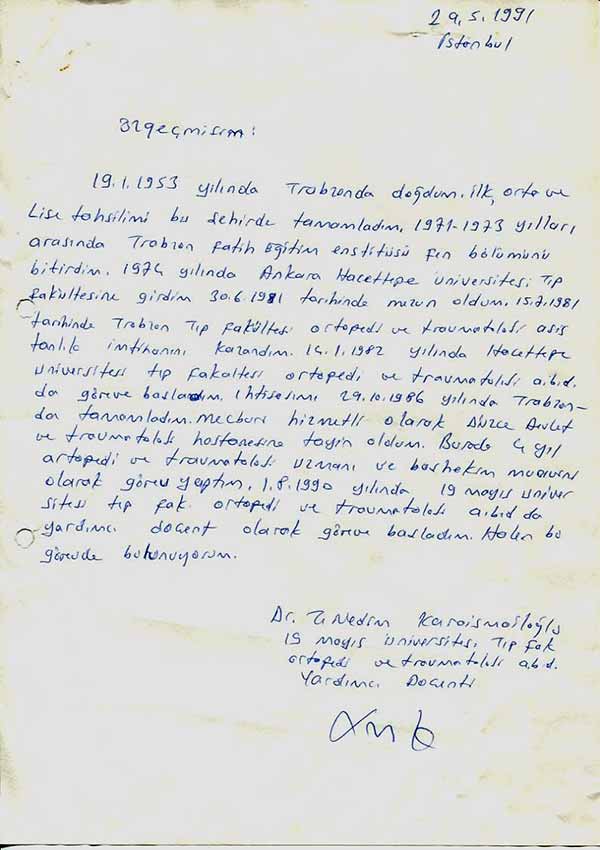 29.5.1991
istanbul
Özgeçmişim:
19.1.1953 yılında Trabzonda doğdum. ilk, orta ve
Lise tahsilimi bu şehirde tamamladım. 1971-1973 yılları
arasında Trabzon fatih Eğitim enstitüsü fen bölümünü
bitirdim. 1974 yılında Ankara Hacettepe üniversitesi Tıp
fakültesine girdim 30.6.1981 tarihinde mezun oldum. 15.7.1981
tarihinde Trabzon Tıp fakültesi ortopedi ve travmatoloji asis
tanlık imtihanını kazandım. 14.1.1982 yılında Hacettepe
üniversitesi tıp fakültesi ortopedi ve travmatoloji a.b.d.
da göreve başladım. ihtisasımı 29.10.1986 yılında Trabzon-
da tamamladım. mecburi hizmetli olarak Düzce Devlet
ve travmatoloji hastanesine tayin oldum. Burada 4 yıl
ortopedi ve travmatoloji uzmanı ve başhekim muavini
olarak görev yaptım. 1.8.1990 yılında 19 mayıs üniver
sitesi tıp fak. ortopedi ve travmatoloji a.b.d da
yardımcı doçent olarak göreve başladım. Halen bu
görevde bulunuyorum.
Dr. Nedim Karaismailoğlu
19 mayıs üniversitesi Tıp fak
ortopedi ve travmatoloji a.b.d.
Yardımcı Doçenti